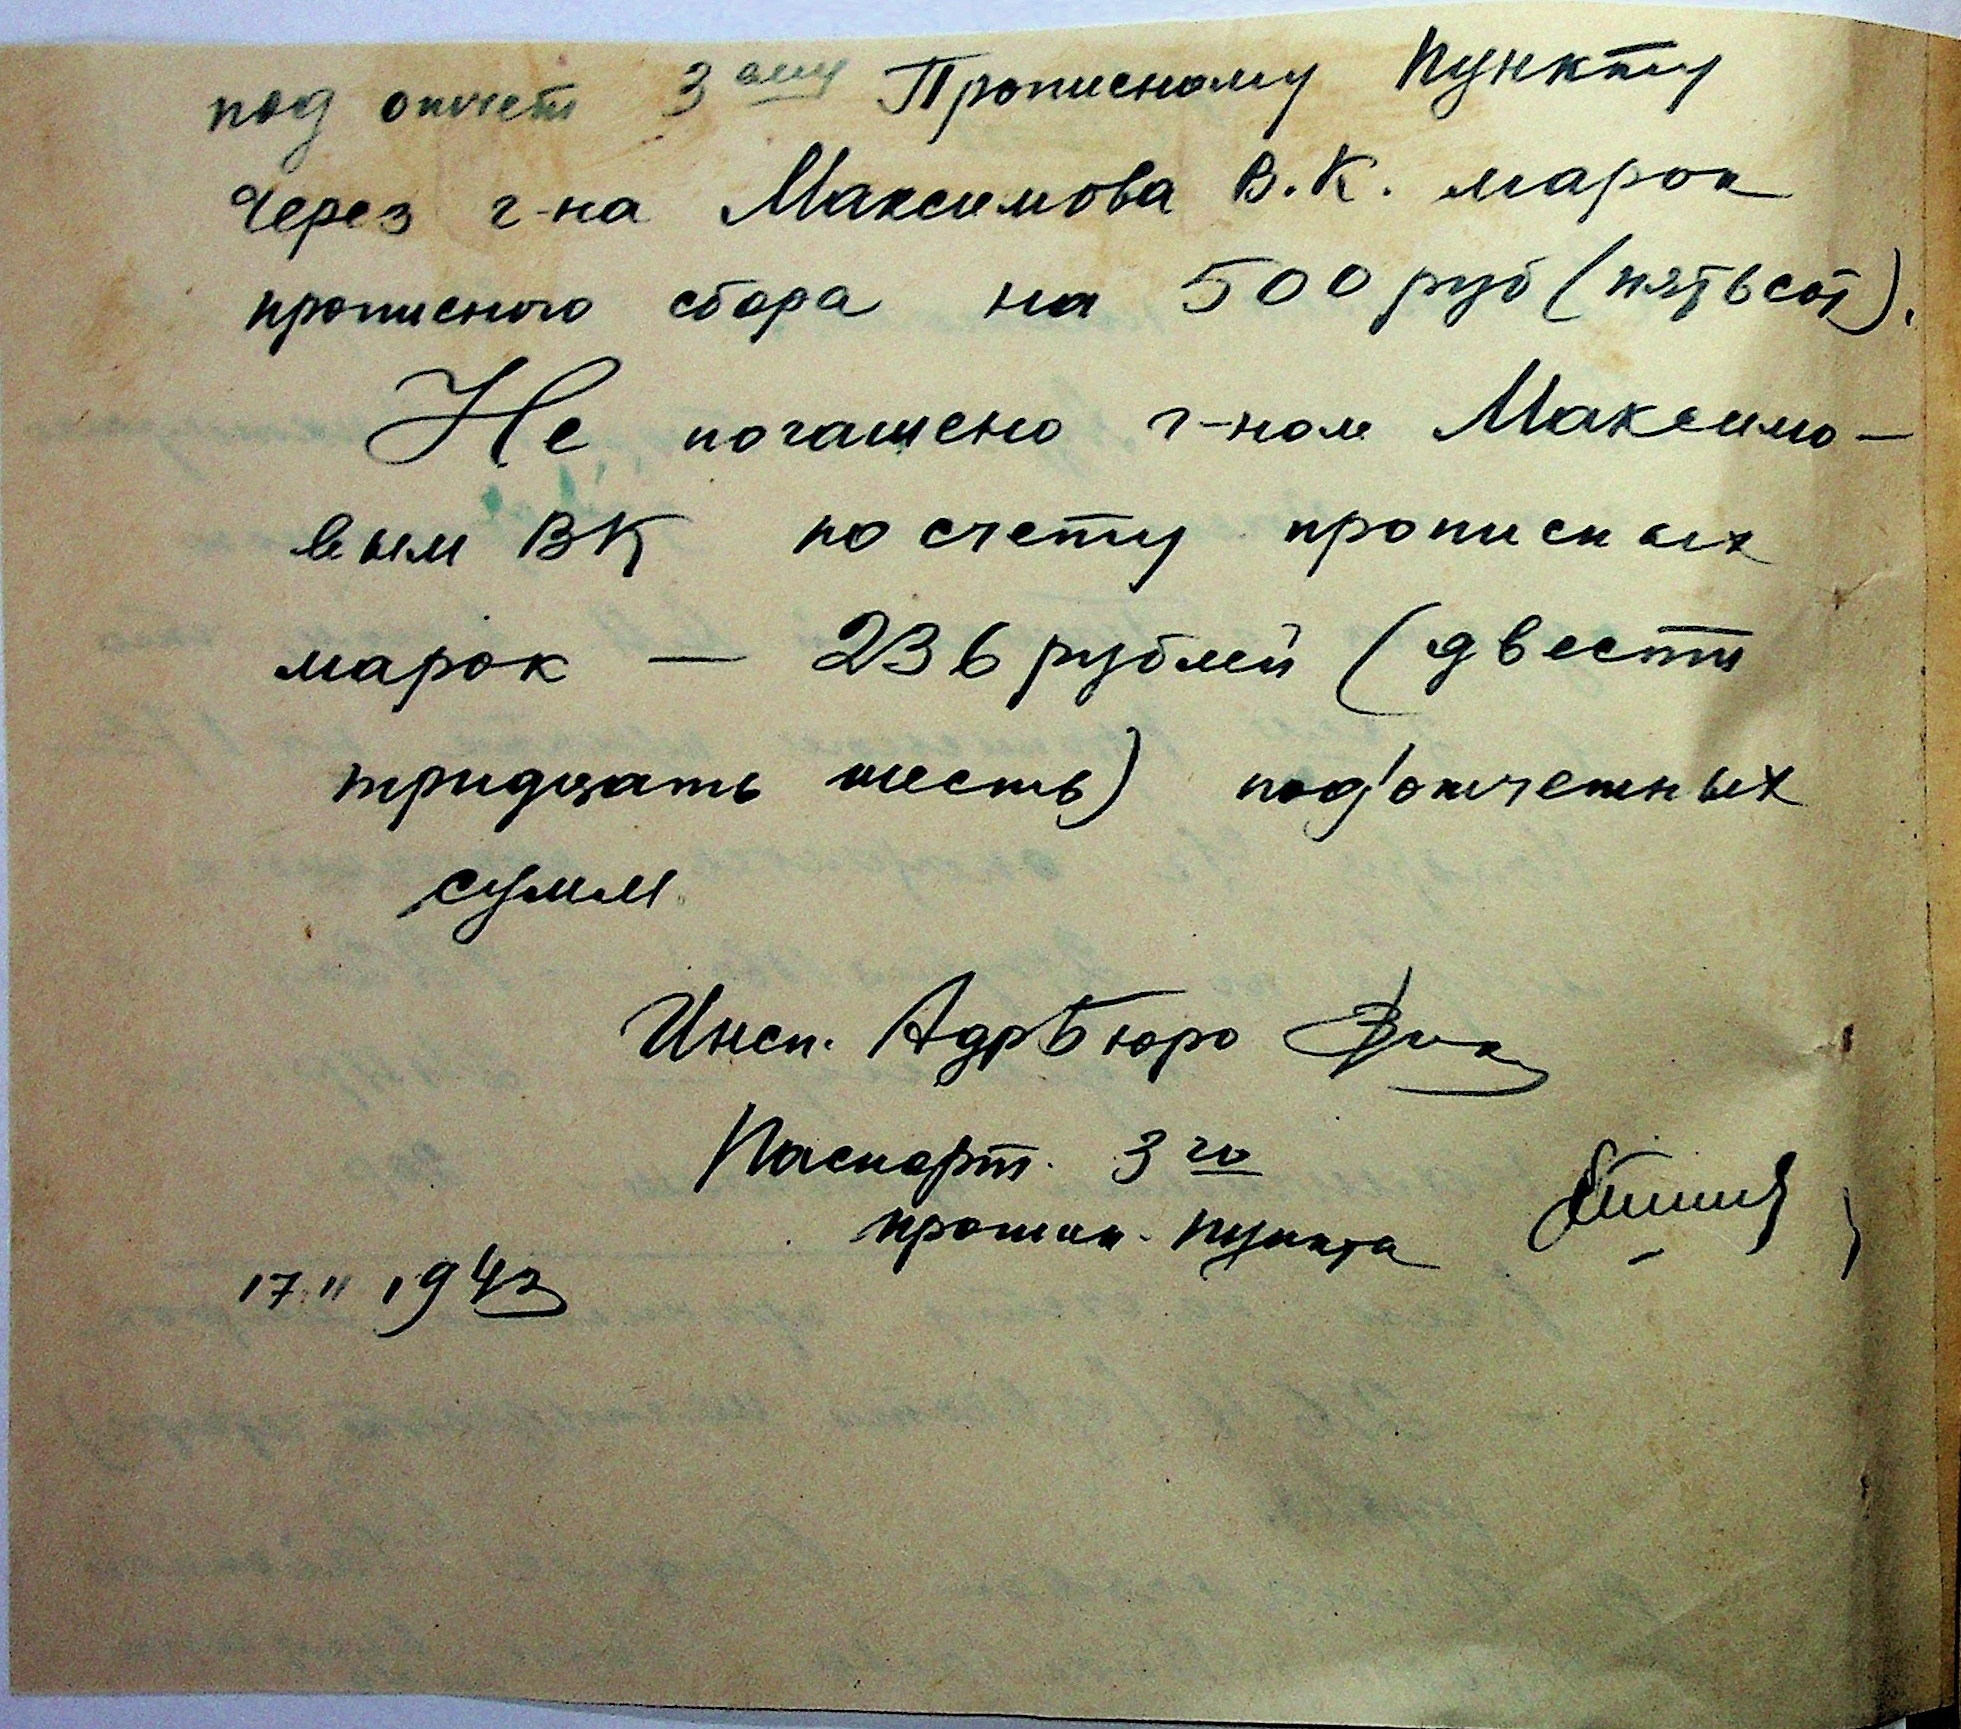 под отчет 3ому Прописному Пункту
через г-на Максимова В.К. марок
прописного сбора на 500 руб (пятьсот).
Не погашено г-ном Максимо-
вым ВК по счету прописных
марок — 236 рублей (двести
тридцать шесть) под'отчетных
сумм
Инсп. АдрБюро
Паспорт. 3го
пропис. пункта
17 II 1942